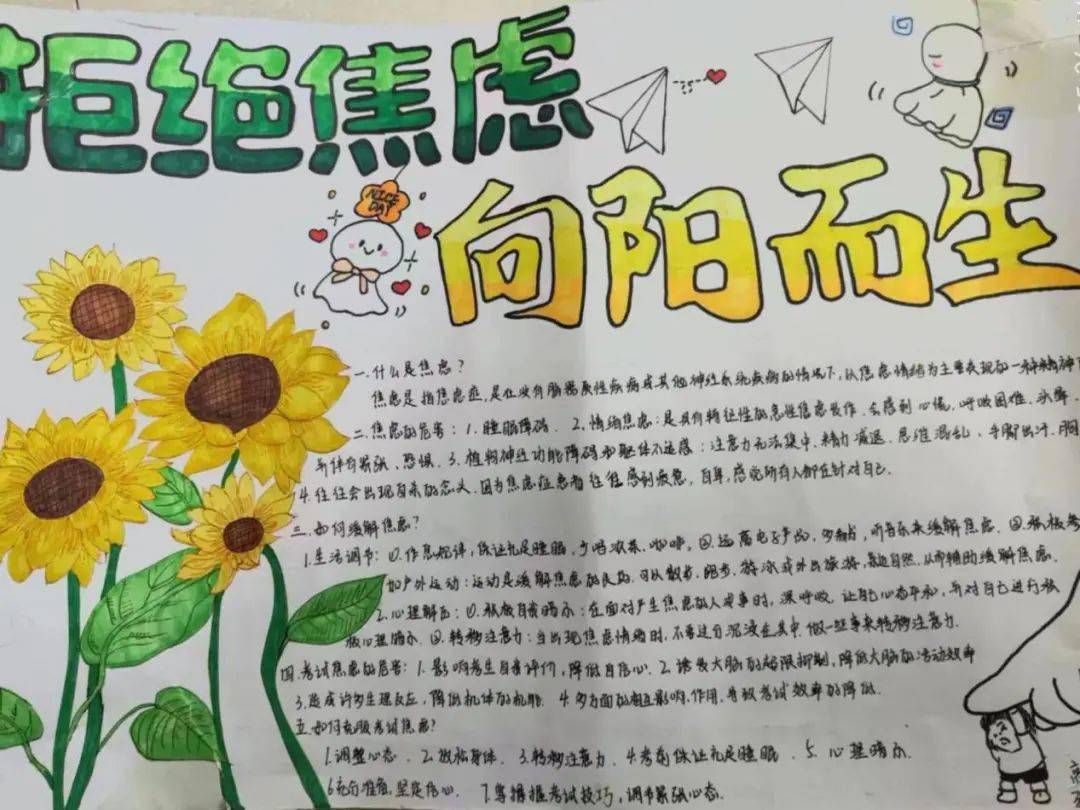 拒绝焦虑
NICE DAY
向阳而生
一.什么是焦虑?
焦虑是指焦虑症,是在没有脑器质性疾病或其他神经系统疾病的情况下,以焦虑情绪为主要表现的一种精神
二.焦虑的危害:1.睡眠障碍. 2.情绪焦虑:是具有特征性的急性焦虑发作.会感到心慌,呼吸困难,
并伴有紧张、恐惧. 3.植物神经功能障碍和躯体不适感:注意力无法集中.精力减退、思维混乱、手脚出汗、胸
4.往往会出现自杀的念头.因为焦虑症患者往往感到疲惫,自卑,感觉所有人都在针对自己.
三.如何缓解焦虑?
1.生活调节:①.作息规律,保证充足睡眠,少喝浓茶、咖啡。②.远离电子产品,多,听音乐来缓解焦虑.③.积极参
加户外运动:运动是缓解焦虑的良药.可以散步、跑步、游泳或外出旅游,亲近自然.从而辅助缓解焦虑.
2.心理解压:①.积极自我暗示:在面对产生焦虑的人或事时,深呼吸.让自己心态平和,并对自己进行积
极心理暗示.②.转移注意力:当出现焦虑情绪时,不要过分沉浸在其中.做一些事来转移注意力.
四.考试焦虑的危害:1.影响考生自我评价,降低自信心.2.诱发大脑的超限抑制,降低大脑的活动效率
3.造成许多生理反应,降低机体的机能. 4.多方面的相互影响,作用.导致考试效率的降低.
五.如何克服考试焦虑?
1.调整心态. 2.放松身体. 3.转移注意力. 4.考前保证充足睡眠. 5.心理暗示.
6.充分准备,坚定信心. 7.掌握考试技巧,调节紧张心态.